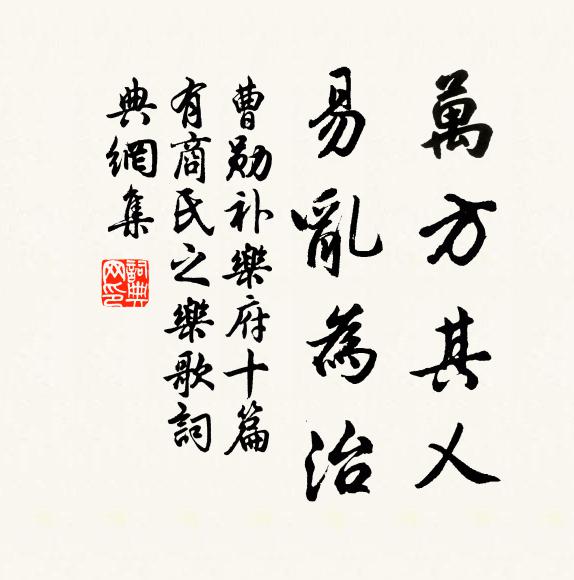 萬方其乂
易亂為治
曹勛补樂府十篇
有商氏之樂歌詞
典網集
詞典网印